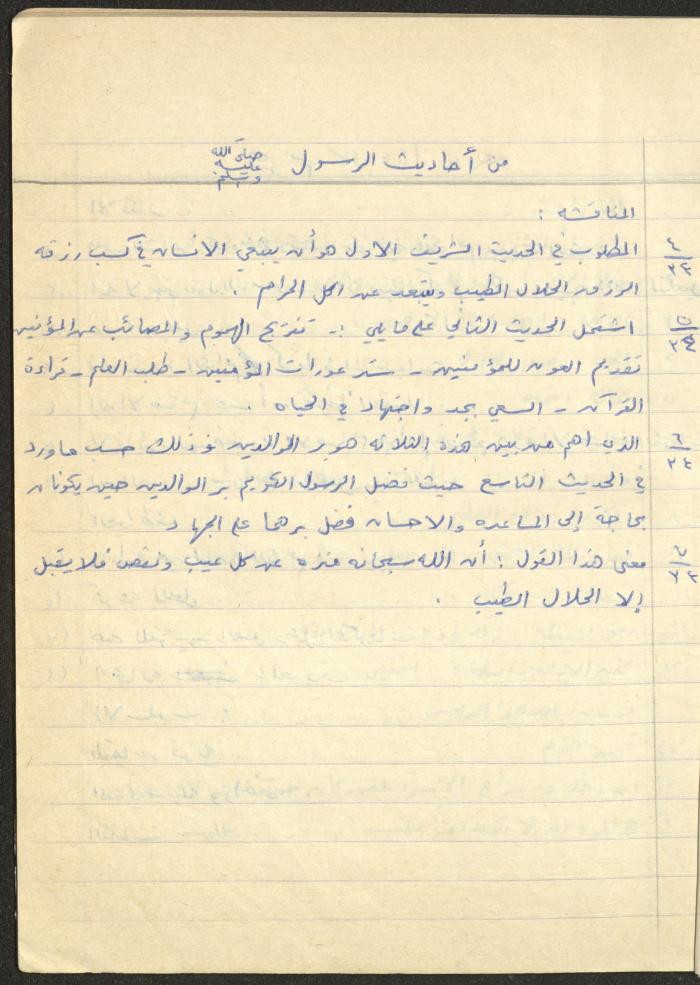 من أحاديث الرسول صلى الله عليه وسلم
المناقشه :
٤/٣٤ المطلوب في الحديث الشريف الاول هو أن يبتغي الانسان في كسب رزقه
الرزق الحلال الطيب ويبتعد عن اكل الحرام .
٥/٣٤ اشتمل الحديث الثاني على مايلي :- تفريج الهموم والمصائب عن المؤمنين
تقديم العون للمؤمنين - ستر عورات المؤمنين - طلب العلم - قراءة
القرآن - السعي بجد واجتهاد في الحياه .
٦/٣٤ الذي اهم من بين هذه الثلاثه هو بر الوالدين وذلك حسب ماورد
في الحديث التاسع حيث فضل الرسول الكريم بر الوالدين حين يكونان
بحاجة إلى المساعده والاحسان فضل برهما على الجهاد
٧/٣٤ معنى هذا القول : أن الله سبحانه منزه عن كل عيب ونقص فلا يقبل
إلا الحلال الطيب .